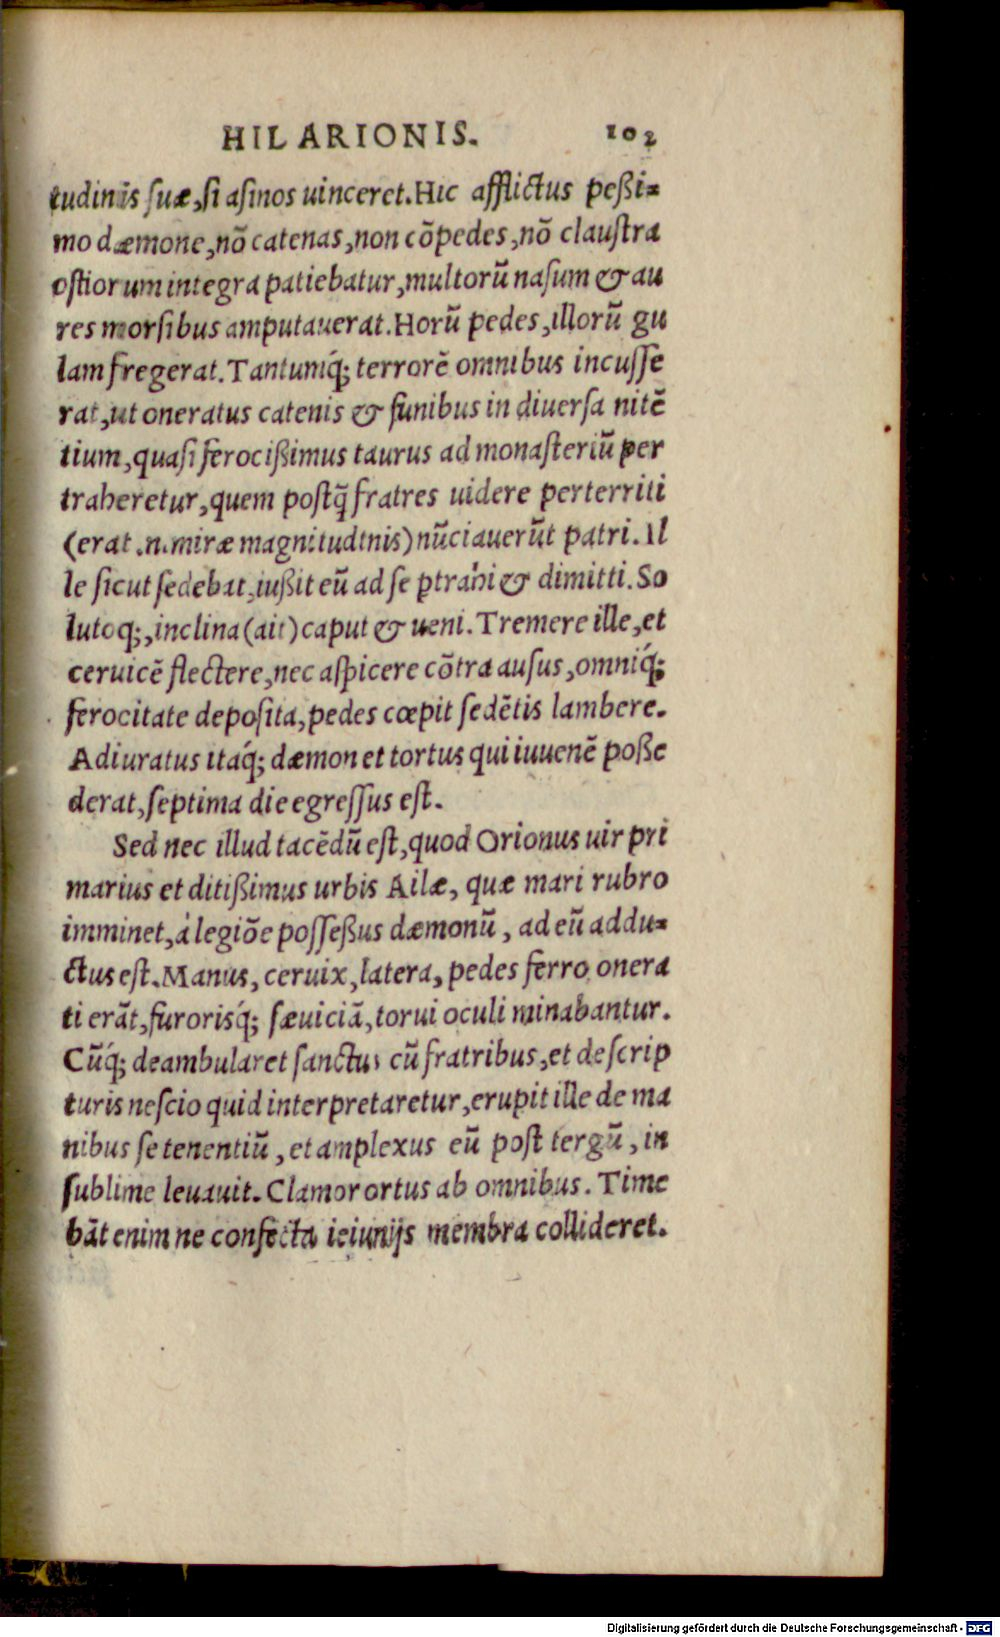 HILARIONIS. 102
tudinis suæ, si asinos uinceret. Hic afflictus peßi=
mo dæmone, nõ catenas, non cõpedes, nõ claustra
ostiorum integra patiebatur, multorũ nasum & au
res morsibus amputauerat. Horũ pedes, illorũ gu
lam fregerat. Tantumq́; terrorẽ omnibus incusse
rat, ut oneratus catenis & funibus in diuersa nitẽ
tium, quasi ferocißimus taurus ad monasteriũ per
traheretur, quem postq̃ fratres uidere perterriti
(erat .n. miræ magnitudinis) nũciauerũt patri. Il
le sicut sedebat, iußit eũ ad se ꝑtrahi & dimitti. So
lutoq́;, inclina (ait) caput & ueni. Tremere ille, et
ceruicẽ flectere, nec aspicere cõtra ausus, omniq́;
ferocitate deposita, pedes cœpit sedẽtis lambere.
Adiuratus itaq́; dæmon et tortus qui iuuenẽ poße
derat, septima die egressus est.
Sed nec illud tacẽdũ est, quod Orionus uir pri
marius et ditißimus urbis Ailæ, quæ mari rubro
imminet, à legiõe posseßus dæmonũ, ad eũ addu=
ctus est. Manus, ceruix, latera, pedes ferro onera
ti erãt, furorisq́; sæuiciã, torui oculi minabantur.
Cũq́; deambularet sanctus cũ fratribus, et de scrip
turis nescio quid interpretaretur, erupit ille de ma
nibus se tenentiũ, et amplexus eũ post tergũ, in
sublime leuauit. Clamor ortus ab omnibus. Time
bãt enim ne confecta ieiunijs membra collideret.
Digitalisierung gefördert durch die Deutsche Forschungsgemeinschaft - DFG